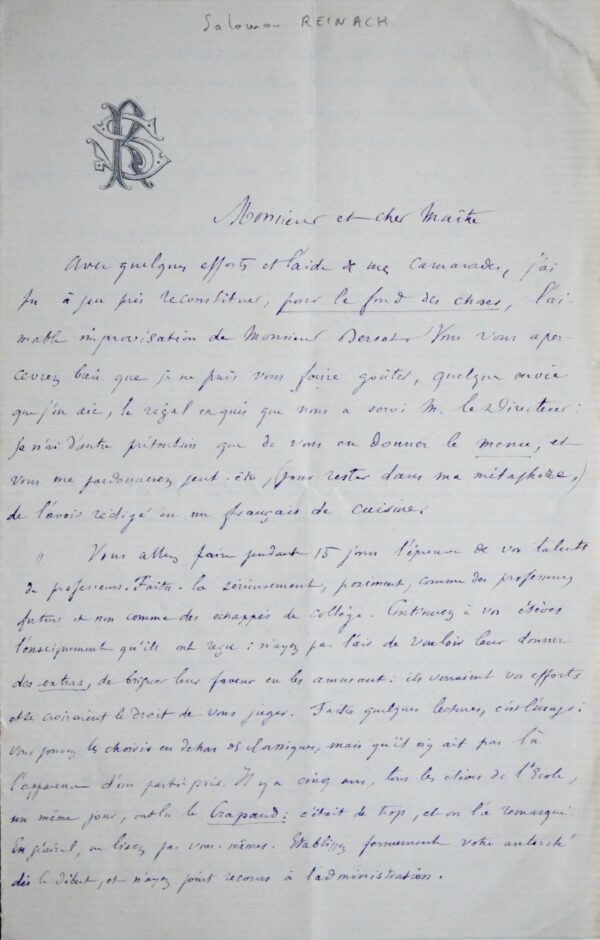 Salomon REINACH
SR
Monsieur et cher Maître
Avec quelques efforts et l'aide de mes camarades, j'ai
pu à peu près reconstituer, pour le fond des choses, l'ai-
mable improvisation de Monsieur Bersot. Vous vous aper-
cevrez bien que je ne puis vous faire goûter, quelque envie
que j'en aie, le régal exquis que nous a servi M. le Directeur :
Je n'ai d'autre prétention que de vous en donner le menu, et
vous me pardonnerez peut-être, (pour rester dans ma métaphore,)
de l'avoir rédigé en un français de cuisine.
" Vous allez faire pendant 15 jours l'épreuve de vos talents
de professeurs. Faites-la sérieusement, posément, comme des professeurs
futurs et non comme des échappés de collège. Continuez à vos élèves
l'enseignement qu'ils ont reçu : n'ayez pas l'air de vouloir leur donner
des extras, de briguer leur faveur en les amusant : ils verraient vos efforts
et se croiraient le droit de vous juger. Faites quelques lectures, c'est l'usage :
vous pouvez les choisir en dehors des classiques, mais qu'il n'y ait pas là
l'apparence d'un parti-pris. Il y a cinq ans, tous les élèves de l'Ecole,
un même jour, ont lu le Crapaud : c'était de trop, et on l'a remarqué.
En général, ne lisez pas vous-mêmes. Etablissez fermement votre autorité
dès le début, et n'ayez point recours à l'administration.